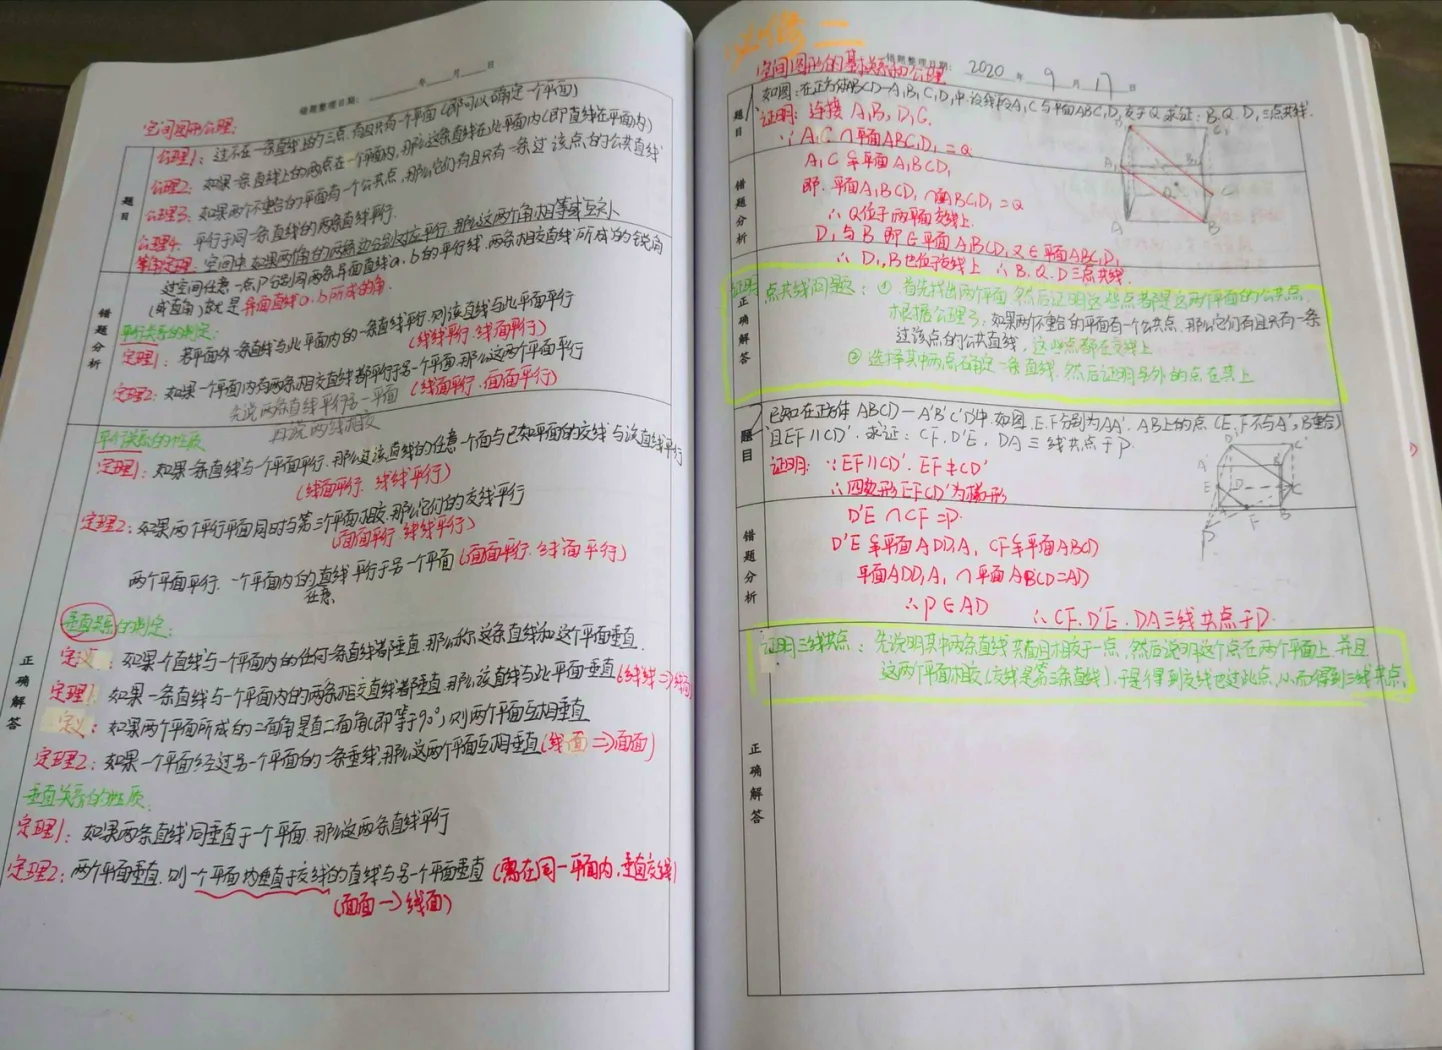 错题整理日期： 年 月 日
空间图形公理：
公理1：过不在一条直线上的三点，有且只有一个平面（即可以确定一个平面）
公理2：如果一条直线上的两点在一个平面内，那么这条直线在此平面内（即直线在平面内）
公理3：如果两个不重合的平面有一个公共点，那么它们有且只有一条过该点的公共直线
公理4：平行于同一条直线的两条直线平行.
等角定理：空间中如果两个角的两条边分别对应平行，那么这两个角相等或互补
过空间任意一点P分别引两条异面直线a、b的平行线，两条相交直线所成的锐角
（或直角）就是异面直线a、b所成的角.
平行关系的判定：
定理1：若平面外一条直线与此平面内的一条直线平行，则该直线与此平面平行
（线线平行、线面平行）
定理2：如果一个平面内有两条相交直线都平行于另一个平面，那么这两个平面平行
（线面平行、面面平行）
先说两条直线平行另一平面
再说两线相交
平行关系的性质
定理1：如果一条直线与一个平面平行，那么过该直线的任意一个面与已知平面的交线与该直线平行
（线面平行、线线平行）
定理2：如果两个平行平面同时与第三个平面相交，那么它们的交线平行
（面面平行、线线平行）
两个平面平行，一个平面内的直线平行于另一个平面（面面平行、线面平行）
任意
垂直关系的判定：
定义：如果一个直线与一个平面内的任何一条直线都垂直，那么称这条直线和这个平面垂直.
定理1：如果一条直线与一个平面内的两条相交直线都垂直，那么该直线与此平面垂直（线线⇒线面）
定义：如果两个平面所成的二面角是直二面角（即等于90°），则两个平面互相垂直
定理2：如果一个平面经过另一个平面的一条垂线，那么这两个平面互相垂直（线面⇒面面）
垂直关系的性质.
定理1：如果两条直线同垂直于一个平面，那么这两条直线平行
定理2：两个平面垂直，则一个平面内垂直于交线的直线与另一个平面垂直（需在同一平面内，垂直交线）
（面面→线面）
题目
错题分析
正确解答
必修二
空间图形的基本关系和公理
错题整理日期： 2020 年 9 月 17 日
题目
1 如图：在正方体ABCD-A₁B₁C₁D₁中，设线段A₁C与平面ABC₁D₁交于Q，求证：B、Q、D₁三点共线.
证明：连接 A₁B, D₁C.
∵ A₁C∩平面ABC₁D₁=Q
A₁C⊊平面A₁BCD₁
即：平面A₁BCD₁∩面ABC₁D₁=Q
∴ Q位于两平面交线上.
D₁与B 即∈平面A₁BCD₁又∈平面ABC₁D₁
∴ D₁,B也位于交线上 ∴ B、Q、D三点共线.
D₁ C₁
A₁ B₁
Q
D C
A B
错题分析
正确解答
证明点共线问题：① 首先找出两个平面，然后证明这些点都是这两个平面的公共点，
根据公理3，如果两个不重合的平面有一个公共点，那么它们有且只有一条
过该点的公共直线，这些点都在交线上
② 选择其中两点确定一条直线，然后证明另外的点在其上
题目
2 已知在正方体 ABCD-A'B'C'D'中，如图，E、F分别为AA'、AB上的点（E、F不与A'、B重合）
且EF∥CD'，求证：CF、D'E、DA三线共点于P.
证明：∵EF∥CD'，EF≠CD'
∴四边形EFCD'为梯形
D'E∩CF=P.
D'E⊊平面ADD₁A₁ CF⊊平面ABCD
平面ADD₁A₁∩平面ABCD=AD
∴P∈AD ∴CF、D'E、DA三线共点于P.
D' C'
A' B'
E D C
F B
P
错题分析
证明三线共点：先说明其中两条直线共面且相交于一点，然后说明这个点在两个平面上，并且
这两个平面相交（交线是第三条直线），于是得到交线也过此点，从而得到三线共点.
正确解答